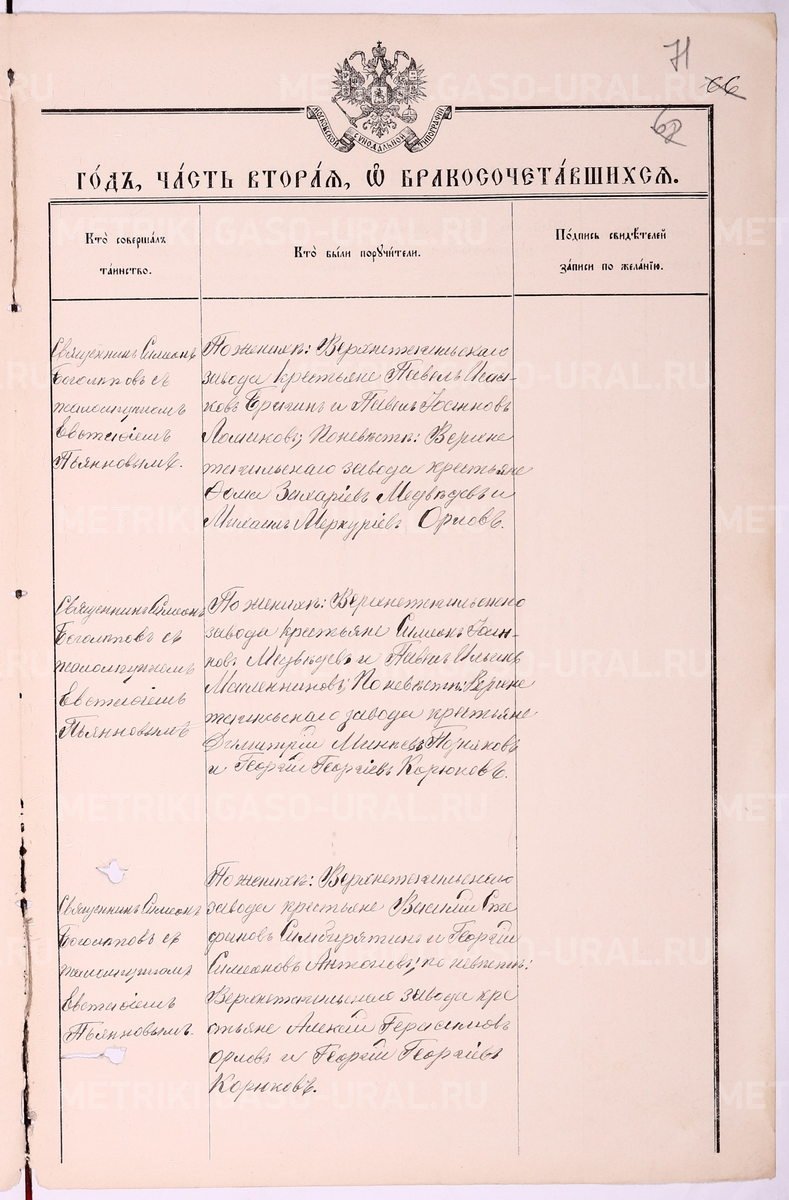 71
66
62
МОСКОВСКОЙ СѴНОДАЛЬНОЙ ТИПОГРАФІИ
ГО́ДЪ, ЧА́СТЬ ВТОРА́Я, Ѿ БРАКОСОЧЕТА́ВШИХСЯ.
Кто̀ соверша́лъ
та́инство.
Кто̀ бы́ли порꙋчи́тели.
По́дпись свидѣ́телей
за́писи по жела́нїю.
Священникъ Симеонъ
Боголѣповъ съ
псаломщикомъ
Евстафіемъ
Пьянновымъ.
По женихѣ: Верхнетагильскаго
завода крестьяне Павелъ Исаа-
ковъ Брагинъ и Павелъ Іоанновъ
Ломиковъ; По невѣстѣ: Верхне
тагильскаго завода крестьяне
Ѳома Захаріевъ Медвѣдевъ и
Михаилъ Меркуріевъ Орловъ.
Священникъ Симеонъ
Боголѣповъ съ
псаломщикомъ
Евстафіемъ
Пьянновымъ
По женихѣ: Верхнетагильскаго
завода крестьяне Симеонъ Іоан-
новъ Медвѣдевъ и Павелъ Ильинъ
Масленниковъ; По невѣстѣ: Верхне
тагильскаго завода крестьяне
Димитрій Минеевъ
и Георгій Георгіевъ Корюковъ.
Священникъ Симеонъ
Боголѣповъ съ
псаломщикомъ
Евстафіемъ
Пьянновымъ.
По женихѣ: Верхнетагильскаго
завода крестьяне Василій Сте
фановъ Симбирятинъ и Георгій
Симеоновъ Антоновъ; по невѣстѣ:
Верхнетагильскаго завода кре
стьяне Алексій Герасимовъ
Орловъ и Георгій Георгіевъ
Корюковъ.
METRIKI.GASO-URAL.RU